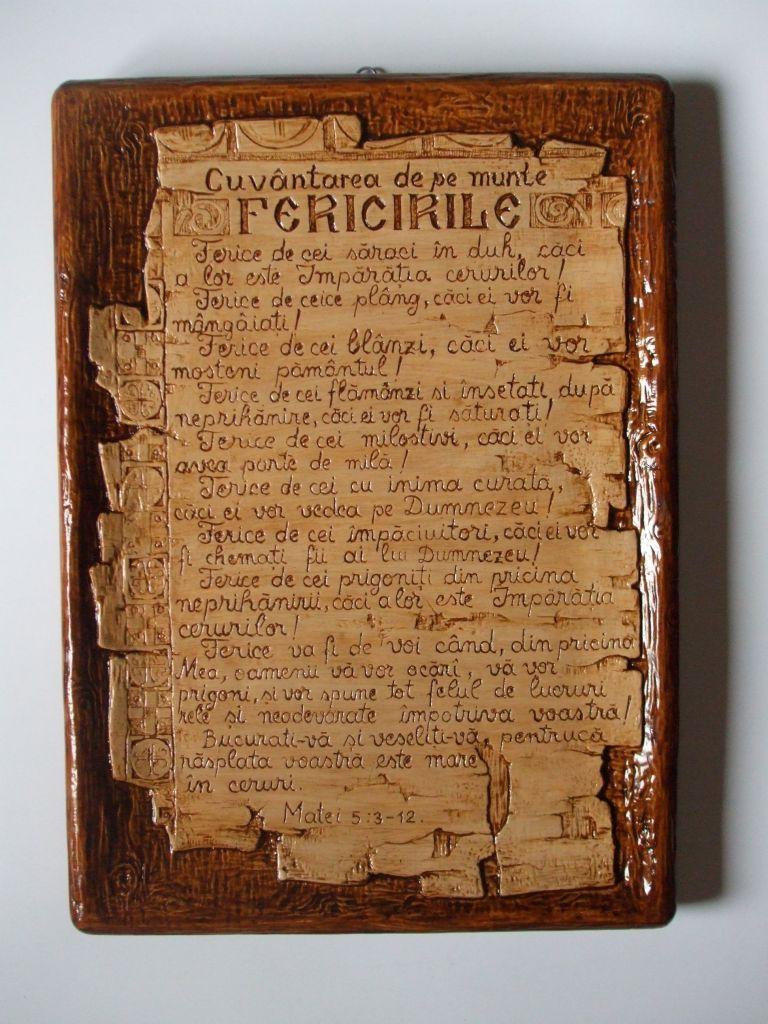 Cuvântarea de pe munte
FERICIRILE
Ferice de cei săraci în duh, căci
a lor este Împărăția cerurilor!
Ferice de ceice plâng, căci ei vor fi
mângâiați!
Ferice de cei blânzi, căci ei vor
moșteni pământul!
Ferice de cei flămânzi si însetați după
neprihănire, căci ei vor fi săturați!
Ferice de cei milostivi, căci ei vor
avea parte de milă!
Ferice de cei cu inima curată,
căci ei vor vedea pe Dumnezeu!
Ferice de cei împăciuitori, căci ei vor
fi chemați fii ai lui Dumnezeu!
Ferice de cei prigoniți din pricina
neprihănirii, căci a lor este Împărăția
cerurilor!
Ferice va fi de voi când, din pricina
Mea, oamenii vă vor ocărî, vă vor
prigoni, și vor spune tot felul de lucruri
rele și neadevărate împotriva voastră!
Bucurați-vă și veseliți-vă, pentrucă
răsplata voastră este mare
în ceruri.
Matei 5:3-12.